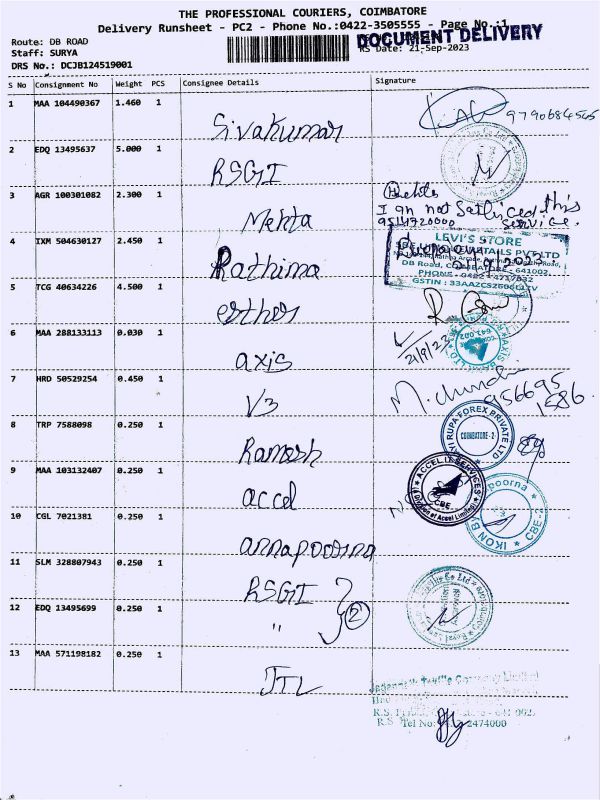 THE PROFESSIONAL COURIERS, COIMBATORE
Delivery Runsheet - PC2 - Phone No.:0422-3505555 - Page No.:1
DOCUMENT DELIVERY
Route: DB ROAD
Staff: SURYA
RS Date: 21-Sep-2023
DRS No.: DCJB124519001
S No Consignment No Weight PCS Consignee Details Signature
1 MAA 104490367 1.460 1
Sivakumar 9790684545
2 EDQ 13495637 5.000 1
RSGI
3 AGR 100301082 2.300 1
Mehta
I am not Satisficed this
9514720000 Service.
4 IXM 504630127 2.450 1
Rathima
LEVI'S STORE
DB Road, COIMBATORE - 641002
PHONE
GSTIN : 33AAZCS2606
5 TCG 40634226 4.500 1
esther
6 MAA 288133113 0.030 1
axis
21/9/23
7 HRD 50529254 0.450 1
V3
M.Chandr
956695
1586.
8 TRP 7588098 0.250 1
Ramesh
RUPA FOREX PRIVATE LTD
COIMBATORE-2
9 MAA 103132407 0.250 1
accel
ACCEL IT SERVICES
(A Division of Accel Limited)
CBE
10 CGL 7021381 0.250 1
annapoorna
poorna
CBE-2
11 SLM 328807943 0.250 1
RSGI
12 EDQ 13495699 0.250 1
" 2
13 MAA 571198182 0.250 1
JTL
Jagannath Textile Company Limited
R.S. Puram, Coimbatore - 641 002.
Tel No 2474000